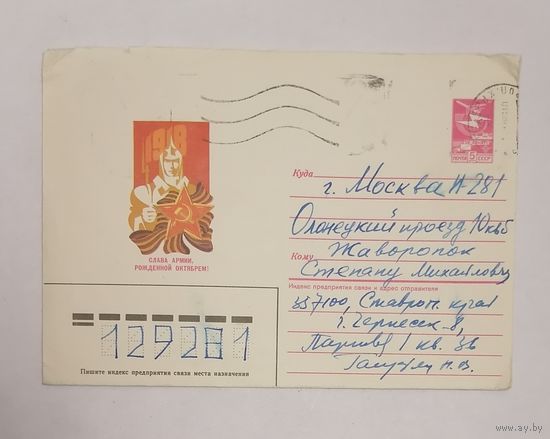 1918
СЛАВА АРМИИ,
РОЖДЕННОЙ ОКТЯБРЕМ!
ПОЧТА 5К СССР
Куда г. Москва И-281
Олонецкий проезд 10 кв 5
Кому Жаворонок
Степану Михайловичу
Индекс предприятия связи и адрес отправителя
357100, Ставроп. края
г. Черкесск-8,
1 кв. 36
129281
Пишите индекс предприятия связи места назначения
www.ay.by